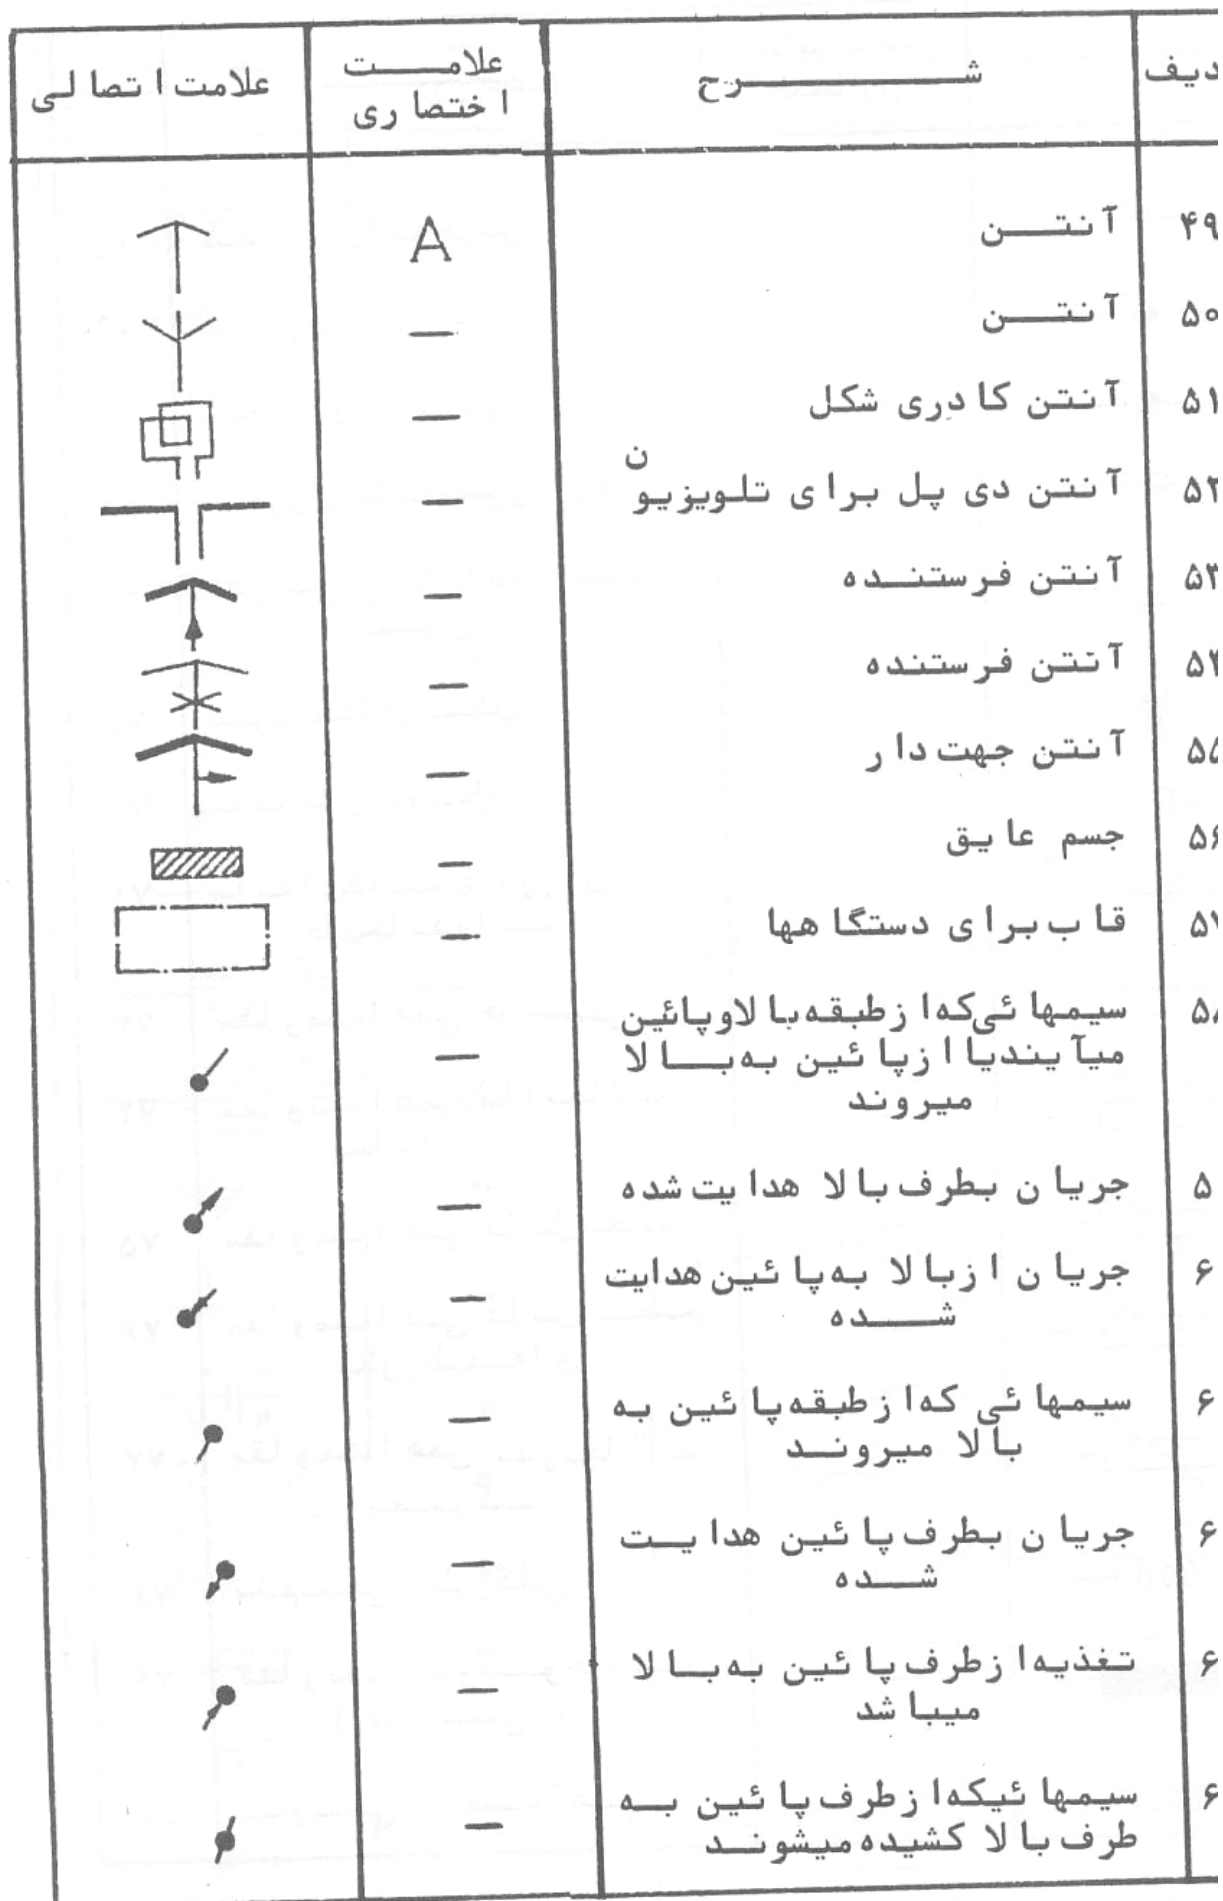 دیف شرح علامت اختصاری علامت اتصالی
۴۹ آنتن A
۵۰ آنتن —
۵۱ آنتن کادری شکل —
۵۲ آنتن دی پل برای تلویزیون —
۵۳ آنتن فرستنده —
۵۴ آنتن فرستنده —
۵۵ آنتن جهت دار —
۵۶ جسم عایق —
۵۷ قاب برای دستگاهها —
۵۸ سیمهائی که از طبقه بالا و پائین —
میآیند یا از پائین به بالا
میروند
۵ جریان بطرف بالا هدایت شده —
۶ جریان از بالا به پائین هدایت —
شده
۶ سیمهائی که از طبقه پائین به —
بالا میروند
۶ جریان بطرف پائین هدایت —
شده
۶ تغذیه از طرف پائین به بالا —
میباشد
۶ سیمهائیکه از طرف پائین به —
طرف بالا کشیده میشوند